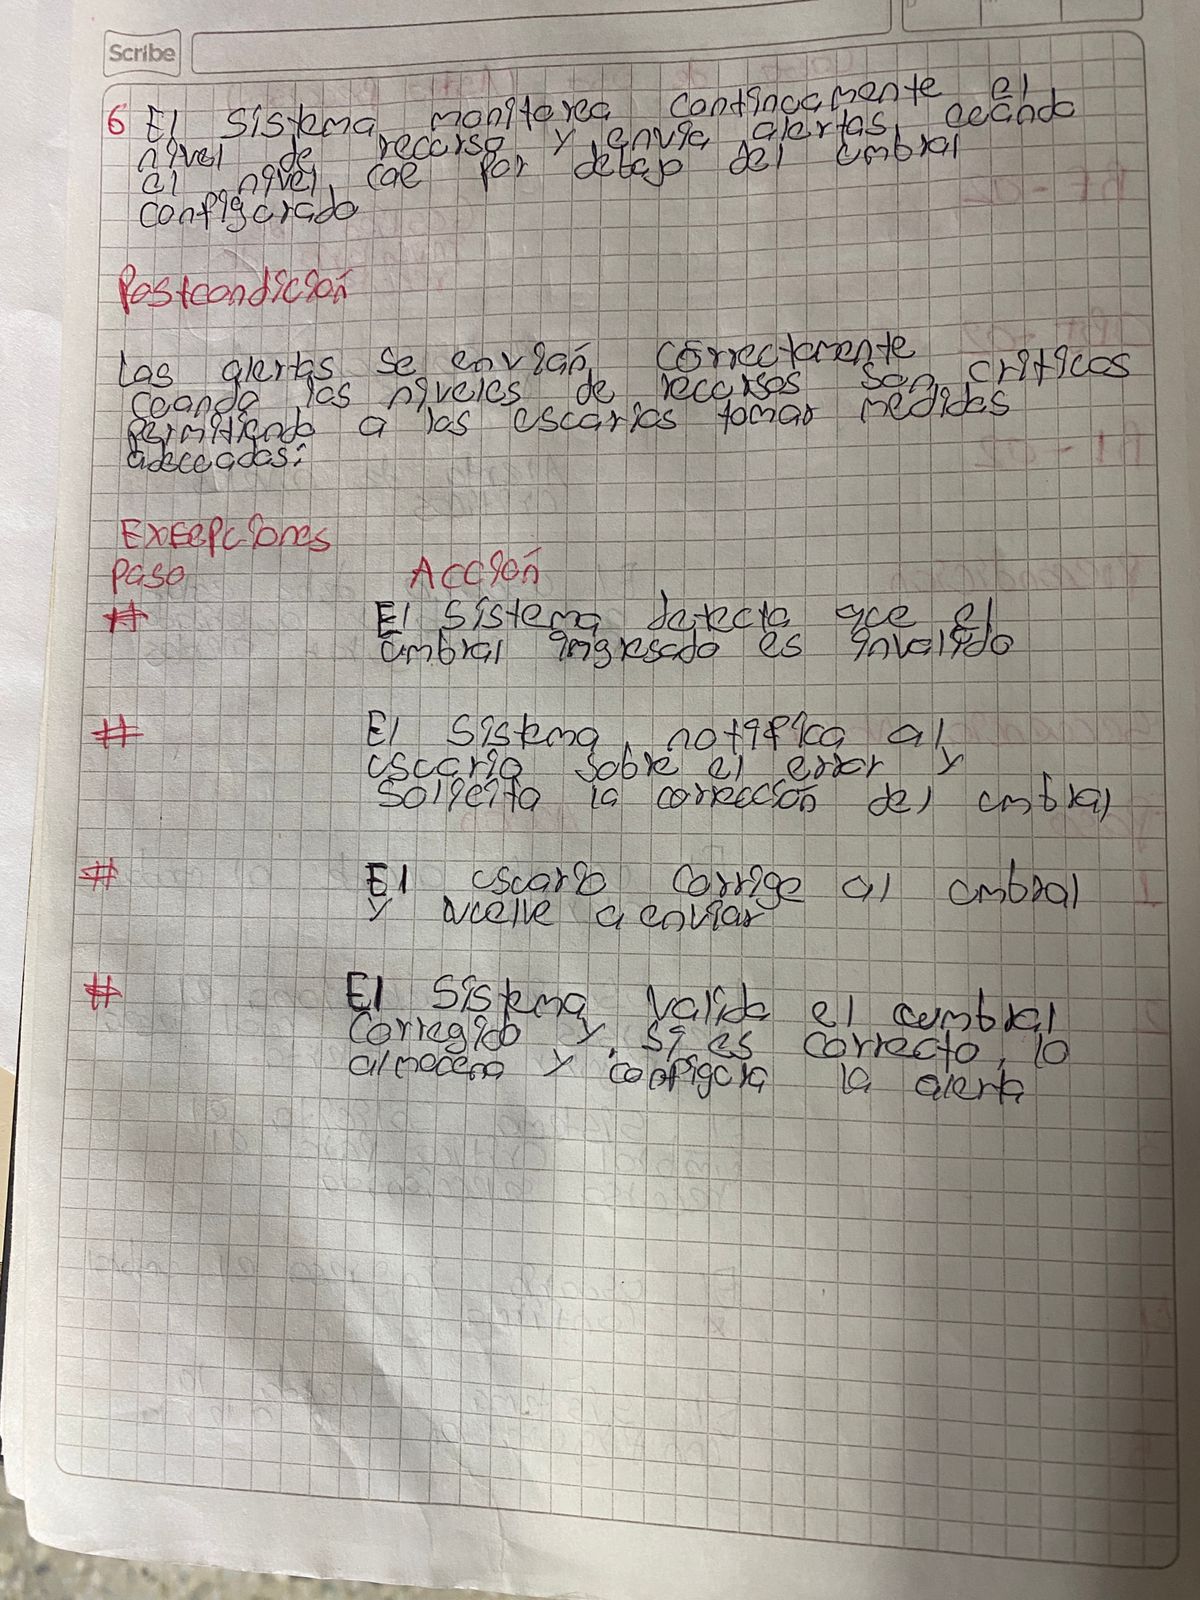 Scribe
6 El sistema monitorea continuamente el
nivel de recurso y envia alertas cuando
el nivel cae por debajo del umbral
configurado
Postcondición
Las alertas se envián correctamente
cuando los niveles de recursos son criticos
permitiendo a los usuarios tomar medidas
adecuadas:
Excepciones
Paso Acción
# El sistema detecta que el
umbral ingresado es invalido
# El sistema notifica al
usuario sobre el error y
solicita la corrección del umbral
# El usuario corrige al umbral
y vuelve a enviar
# El sistema valida el umbral
corregido y, si es correcto, lo
almacena y configura la alerta